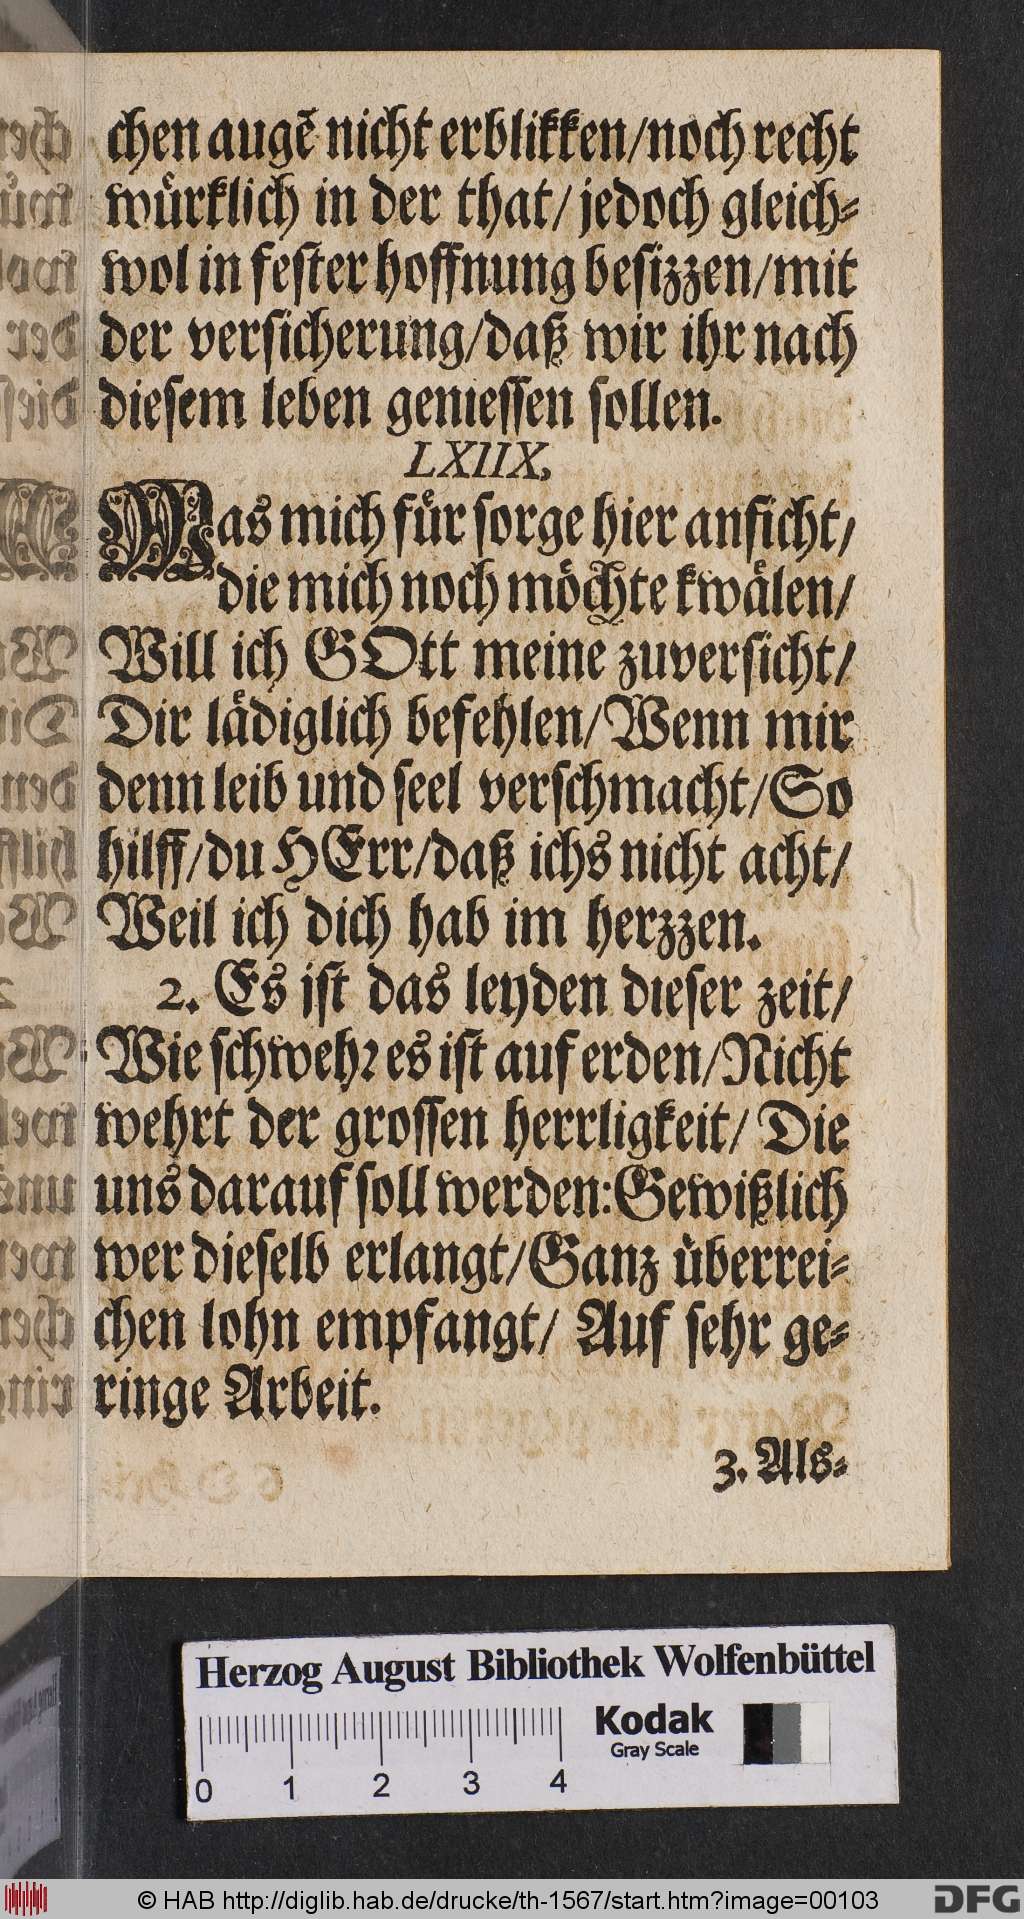 chen augẽ nicht erblikken/noch recht
würklich in der that/ jedoch gleich-
wol in fester hoffnung besizzen/mit
der versicherung/daß wir ihr nach
diesem leben geniessen sollen.
LXIIX,
Was mich für sorge hier anficht/
die mich noch möchte kwälen/
Will ich GOtt meine zuversicht/
Dir lädiglich befehlen/Wenn mir
denn leib und seel verschmacht/So
hilff/du HErr/daß ichs nicht acht/
Weil ich dich hab im herzzen.
2. Es ist das leyden dieser zeit/
Wie schwehr es ist auf erden/Nicht
wehrt der grossen herrligkeit/ Die
uns darauf soll werden: Gewißlich
wer dieselb erlangt/Ganz überrei-
chen lohn empfangt/ Auf sehr ge-
ringe Arbeit.
3. Als-
Herzog August Bibliothek Wolfenbüttel
Kodak
Gray Scale
0 1 2 3 4
© HAB http://diglib.hab.de/drucke/th-1567/start.htm?image=00103
DFG